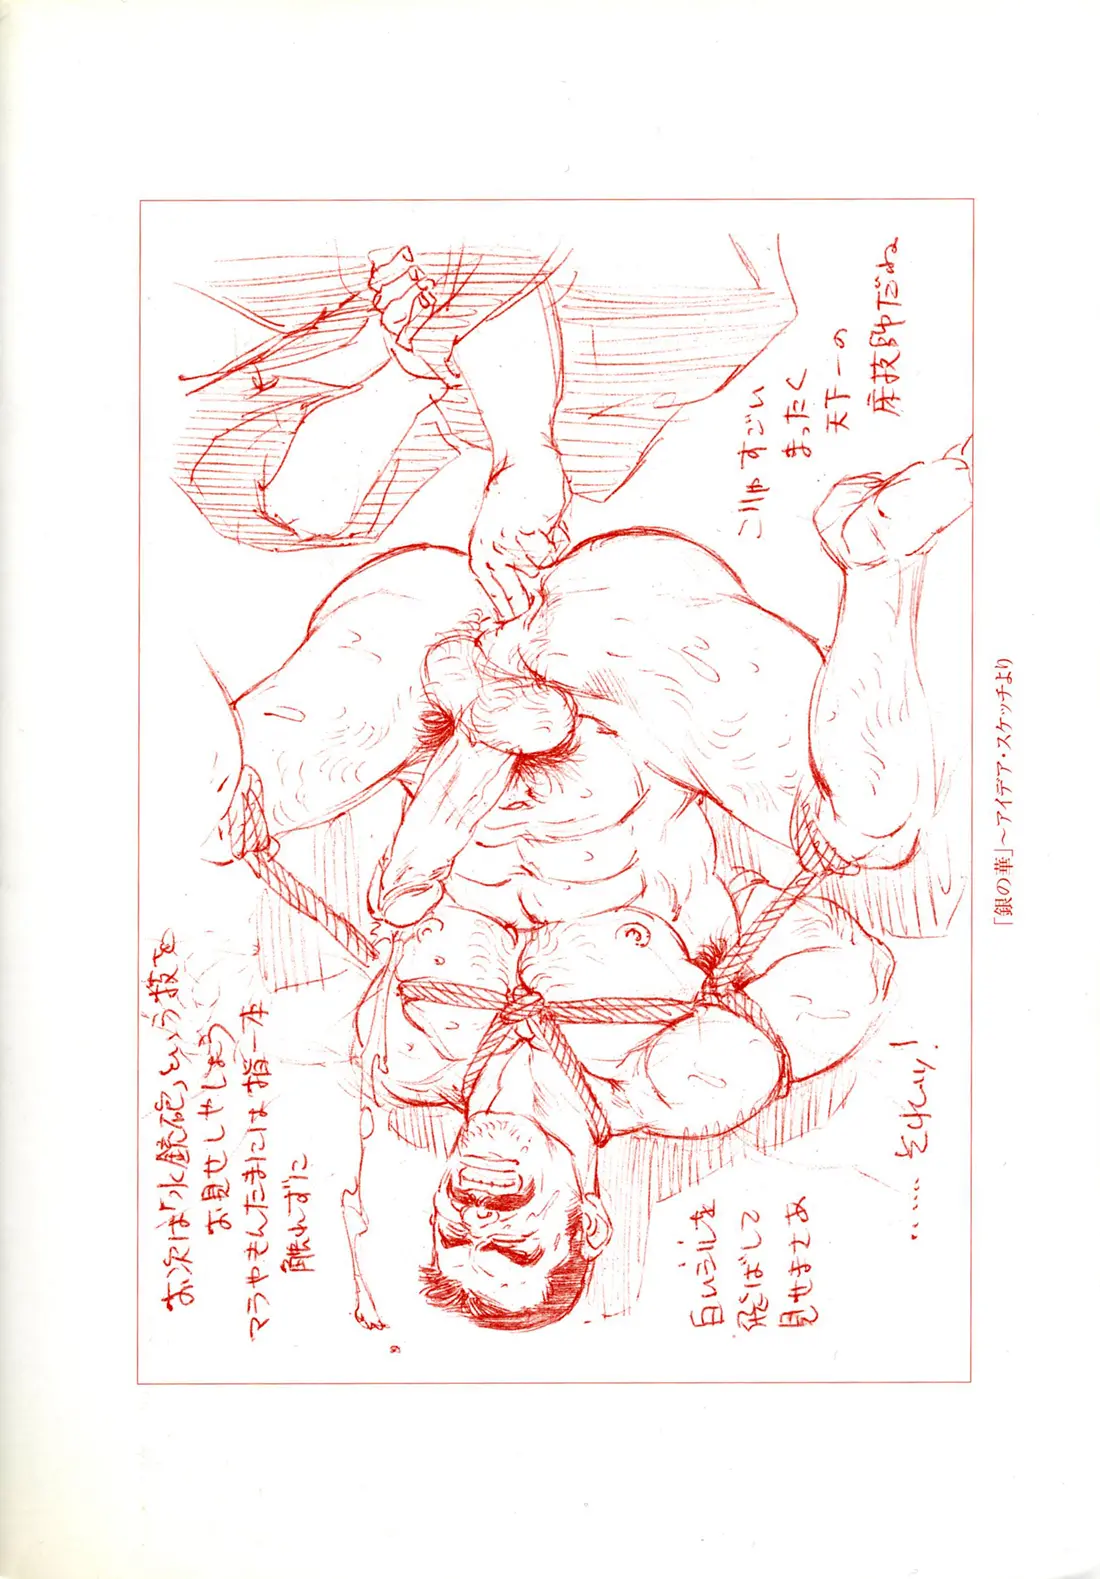 お次は「水銃砲」という技を
お見せしやしょう
マラやきんたまには指一本
触れずに
白いシルを
飛ばして
見せまさあ
……それッ!
こりゃすごい
まったく
天下一の
麻技師だね
「銀の華」~アイデア・スケッチより